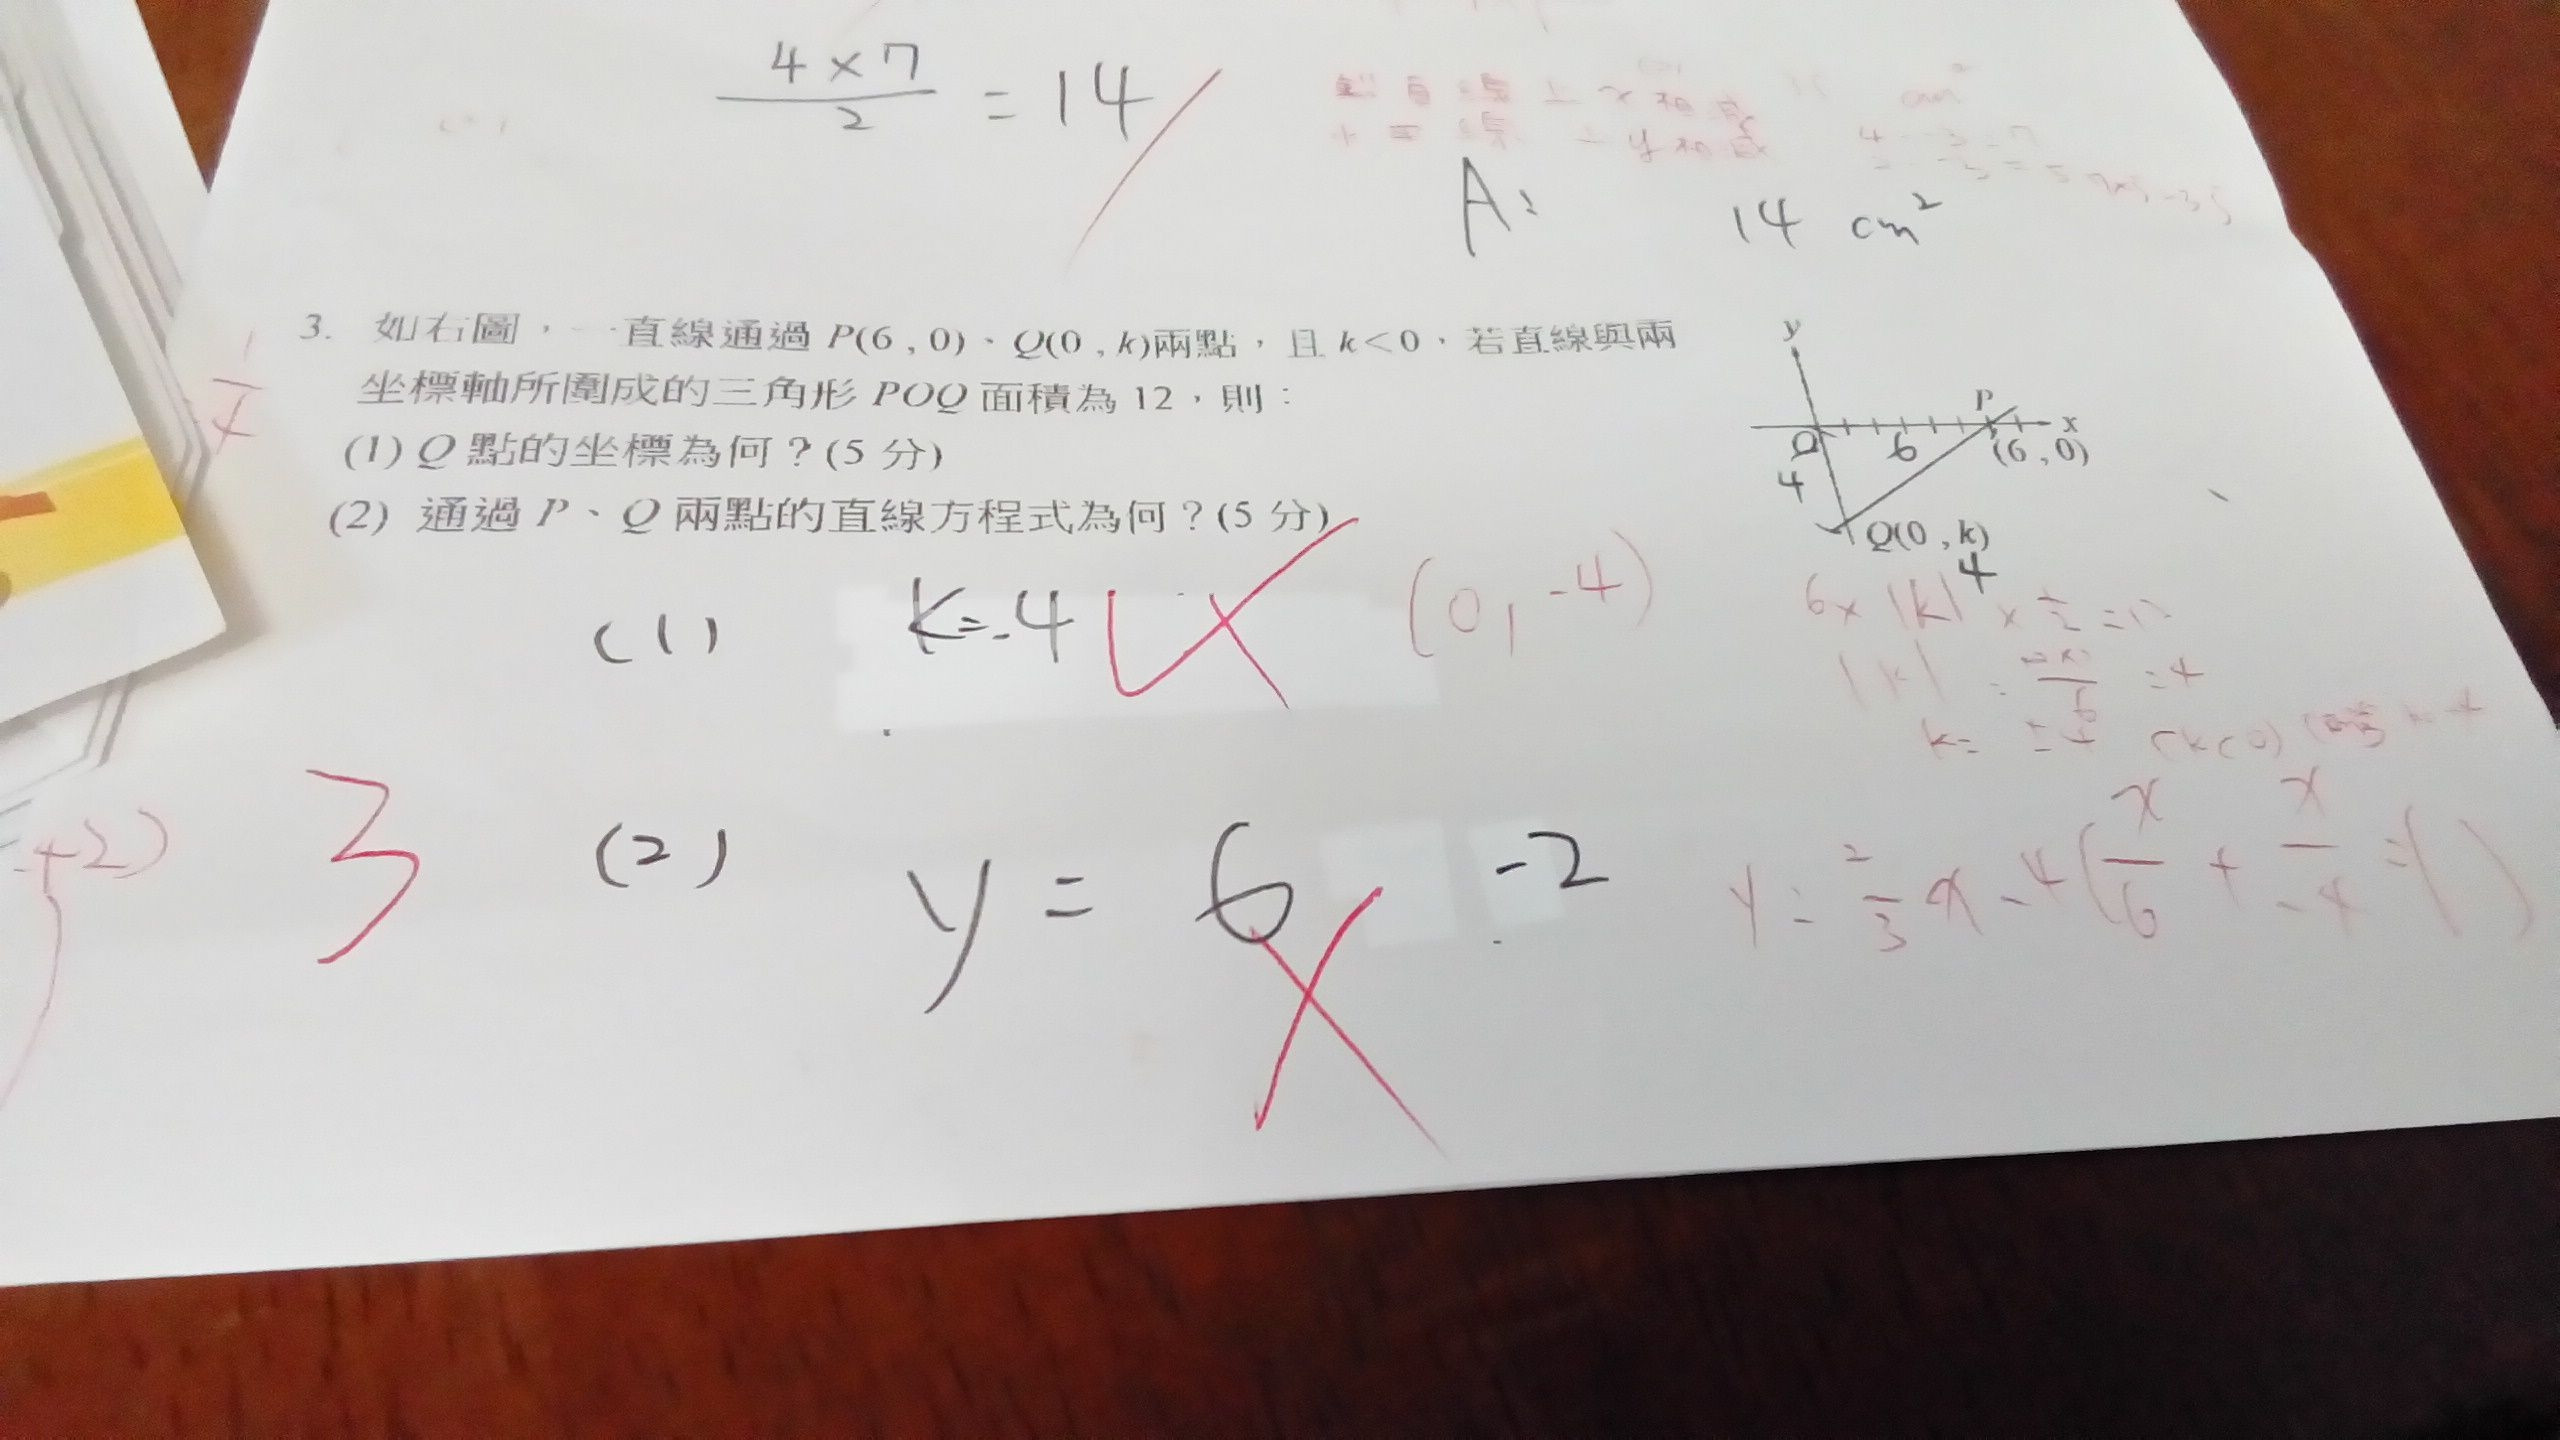 4 × 7
2
= 14
A: 14 cm²
3. 如右圖，一直線通過 P(6 , 0)、Q(0 , k)兩點，且 k<0，若直線與兩
坐標軸所圍成的三角形 POQ 面積為 12，則：
(1) Q 點的坐標為何？(5 分)
(2) 通過 P、Q 兩點的直線方程式為何？(5 分)
y
P
x
O
6
(6 , 0)
4
Q(0 , k)
4
(1) k=-4
(0, -4)
6 × |k| × 1/2 = 12
|k| = =4
k= ±4 (k<0)
3
(2) y = 6 -2
y = 2/3 x - 4 (x/6 + x/-4 = 1)
+2)